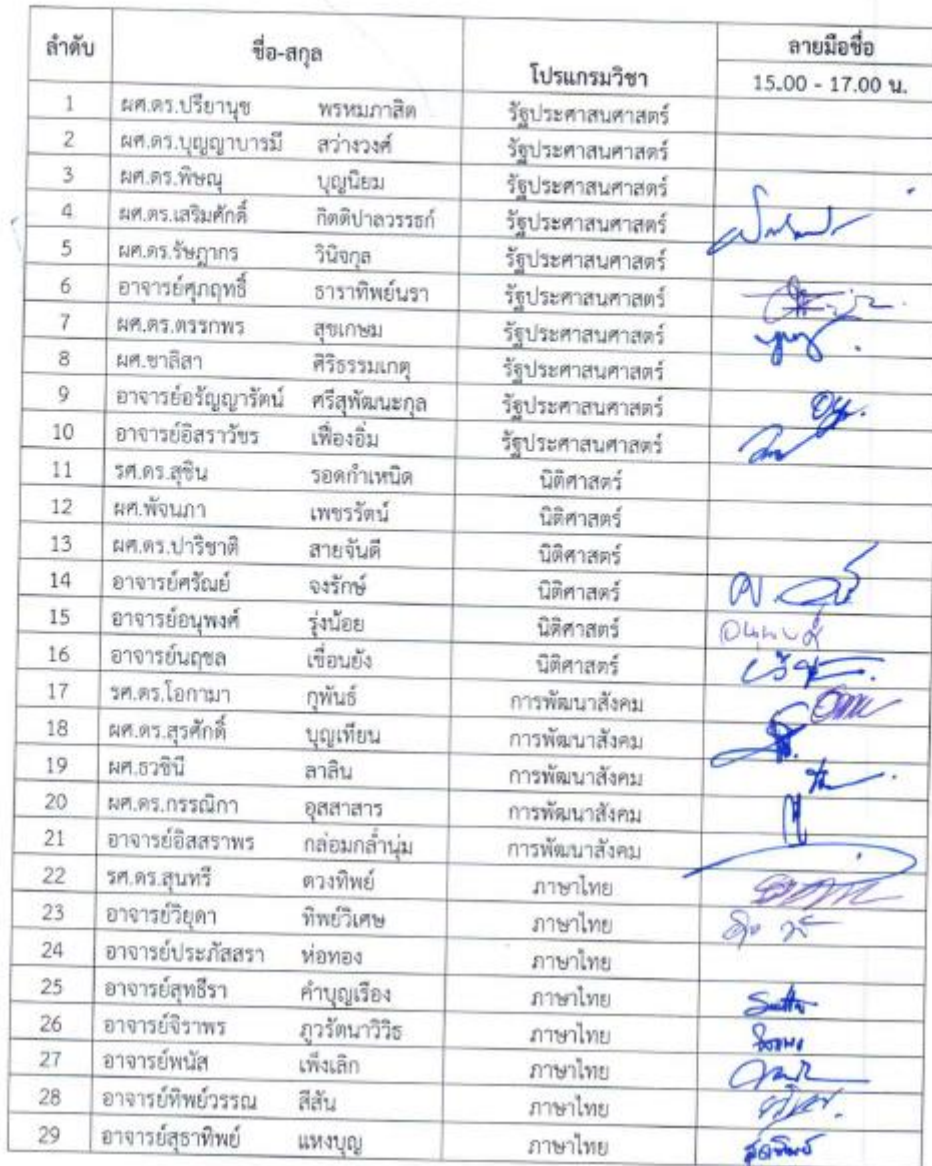 ลำดับ ชื่อ-สกุล โปรแกรมวิชา ลายมือชื่อ
15.00 - 17.00 น.
1 ผศ.ดร.ปรียานุช พรหมภาสิต รัฐประศาสนศาสตร์
2 ผศ.ดร.บุญญาบารมี สว่างวงศ์ รัฐประศาสนศาสตร์
3 ผศ.ดร.พิษณุ บุญนิยม รัฐประศาสนศาสตร์
4 ผศ.ดร.เสริมศักดิ์ กิตติปาลวรรธก์ รัฐประศาสนศาสตร์
5 ผศ.ดร.รัษฎากร วินิจกุล รัฐประศาสนศาสตร์
6 อาจารย์ศุภฤทธิ์ ธาราทิพย์นรา รัฐประศาสนศาสตร์
7 ผศ.ดร.ตรรกพร สุขเกษม รัฐประศาสนศาสตร์
8 ผศ.ชาลิสา ศิริธรรมเกตุ รัฐประศาสนศาสตร์
9 อาจารย์อรัญญารัตน์ ศรีสุพัฒนะกุล รัฐประศาสนศาสตร์
10 อาจารย์อิสราวัชร เฟื่องอิ่ม รัฐประศาสนศาสตร์
11 รศ.ดร.สุชิน รอดกำเหนิด นิติศาสตร์
12 ผศ.พัจนภา เพชรรัตน์ นิติศาสตร์
13 ผศ.ดร.ปาริชาติ สายจันดี นิติศาสตร์
14 อาจารย์ศรัณย์ จงรักษ์ นิติศาสตร์
15 อาจารย์อนุพงศ์ รุ่งน้อย นิติศาสตร์
16 อาจารย์นฤชล เขื่อนยัง นิติศาสตร์
17 รศ.ดร.โอกามา กูพันธ์ การพัฒนาสังคม
18 ผศ.ดร.สุรศักดิ์ บุญเทียน การพัฒนาสังคม
19 ผศ.ธวชินี ลาลิน การพัฒนาสังคม
20 ผศ.ดร.กรรณิกา อุสสาสาร การพัฒนาสังคม
21 อาจารย์อิสสราพร กล่อมกล่ำนุ่ม การพัฒนาสังคม
22 รศ.ดร.สุนทรี ดวงทิพย์ ภาษาไทย
23 อาจารย์วิยุดา ทิพย์วิเศษ ภาษาไทย
24 อาจารย์ประภัสสรา ห่อทอง ภาษาไทย
25 อาจารย์สุทธีรา คำบุญเรือง ภาษาไทย
26 อาจารย์จิราพร ภูวรัตนาวิวิธ ภาษาไทย
27 อาจารย์พนัส เพ็งเลิก ภาษาไทย
28 อาจารย์ทิพย์วรรณ สีสัน ภาษาไทย
29 อาจารย์สุธาทิพย์ แหงบุญ ภาษาไทย